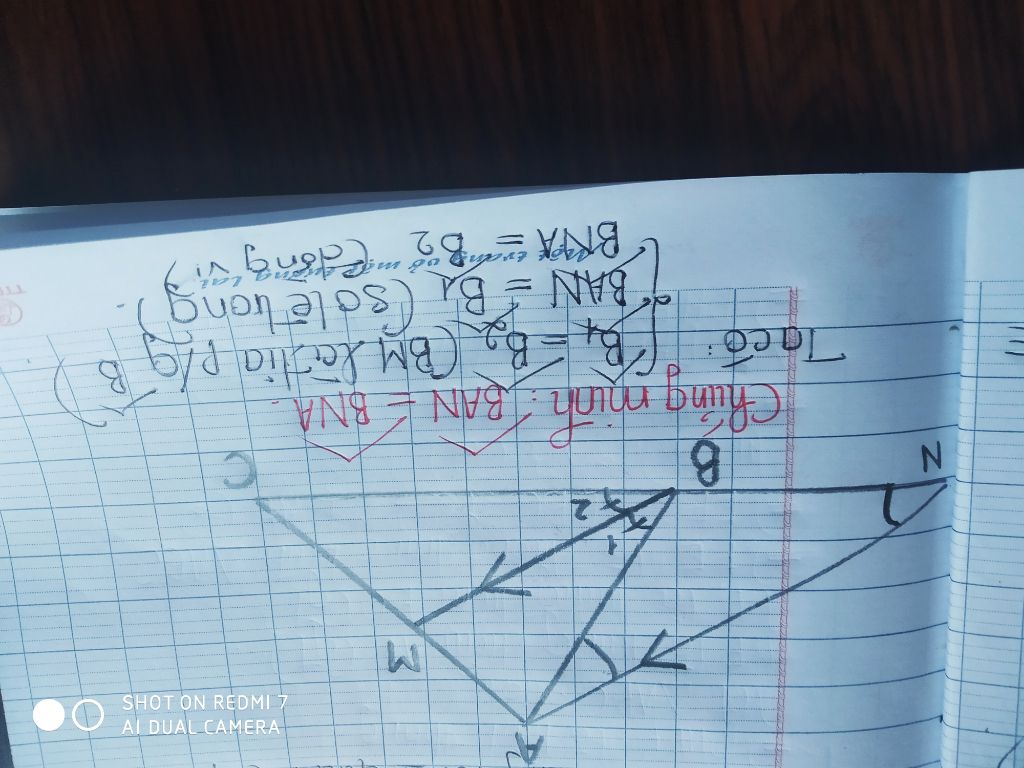 A
M
1
2
N
B
C
Chứng minh: BAN = BNA.
Ta có: B1 = B2 (BM là tia p/g B)
BAN = B1 (sole trong)
BNA = B2 (đồng vị)
SHOT ON REDMI 7
AI DUAL CAMERA